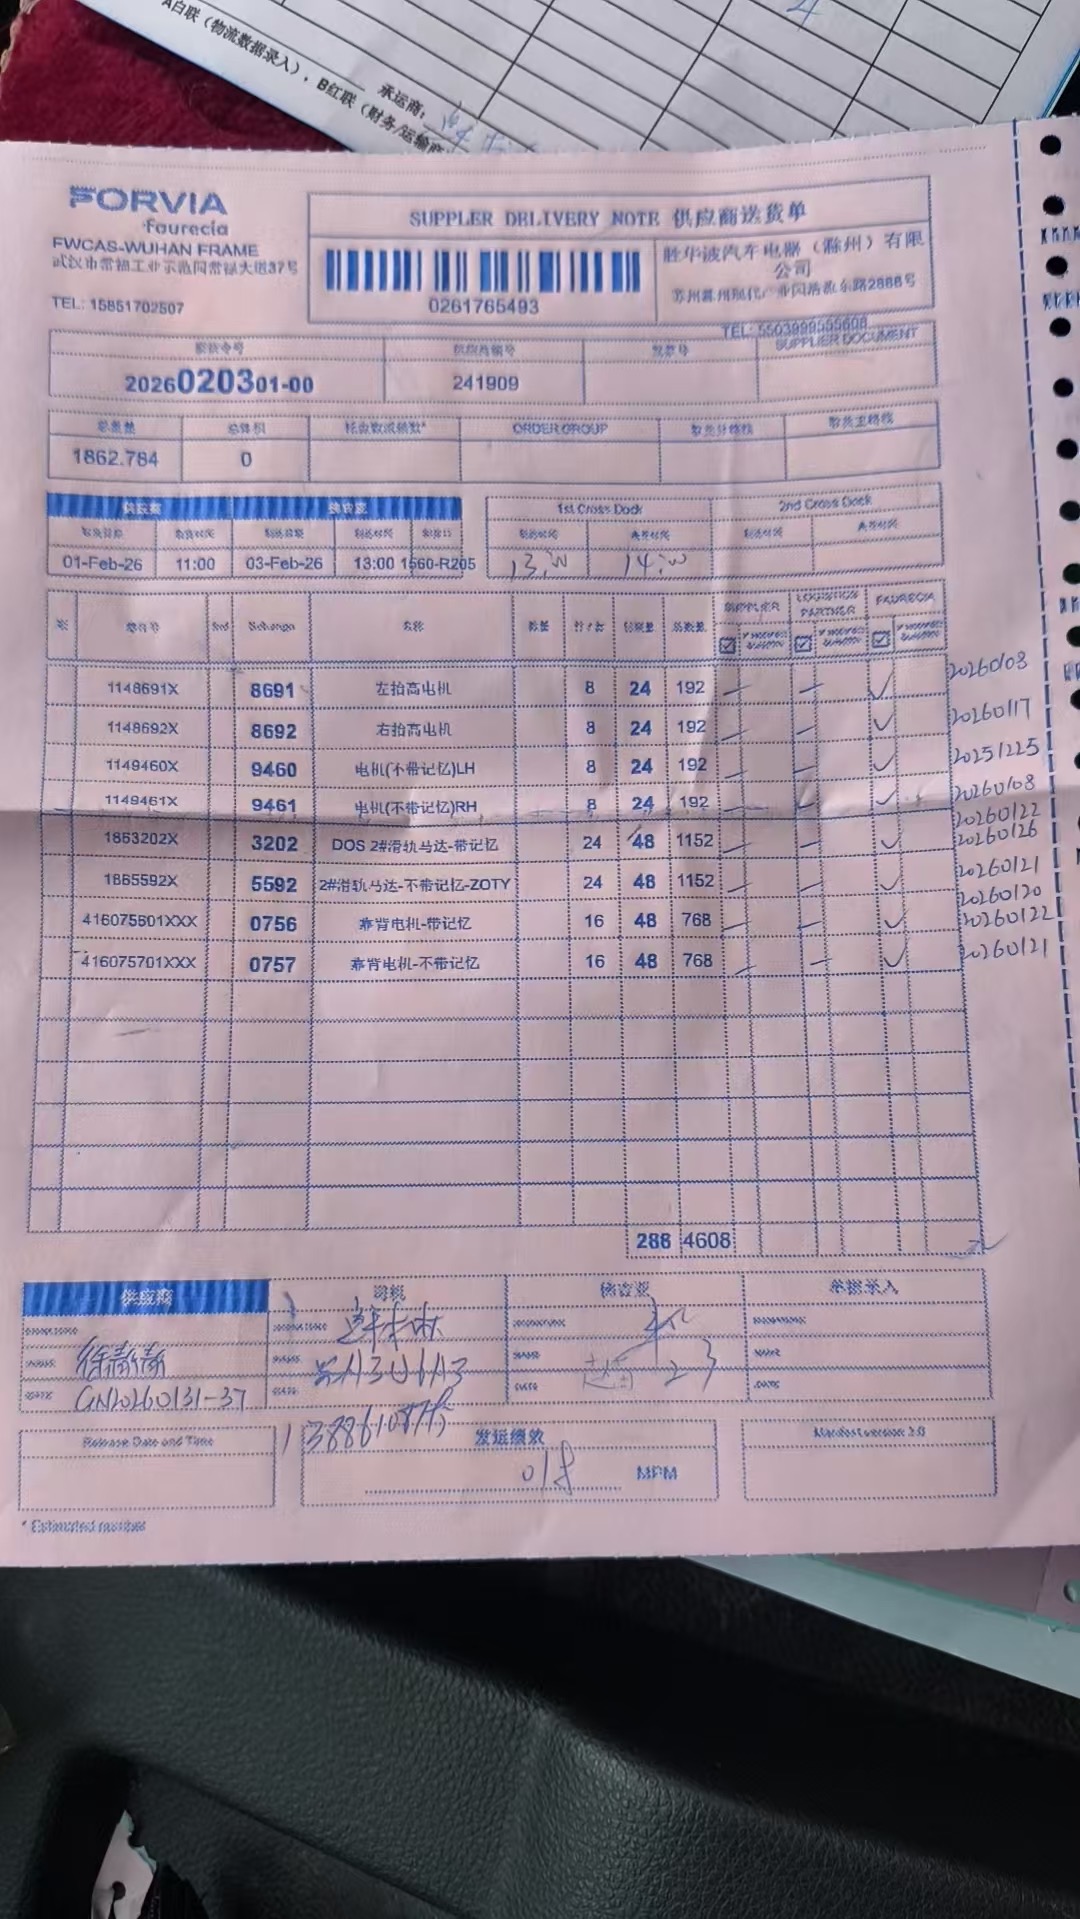 A白联（物流数据录入），B红联（财务/运输商
承运商：
FORVIA
faurecia
FWCAS-WUHAN FRAME
武汉市常福工业示范园常福大道37号
TEL: 15851702507
SUPPLER DELIVERY NOTE 供应商送货单
0261765493
胜华波汽车电器（滁州）有限
公司
TEL: 5503999555608
SUPPLIER DOCUMENT
供应商编号 发票号
2026020301-00 241909
总重量 总体积 托盘数或箱数* ORDER GROUP
1862.784 0
供应商 佛吉亚 1st Cross Dock 2nd Cross Dock
取货日期 取货时间 到达日期 到达时间 到达时间 离开时间 到达时间 离开时间
01-Feb-26 11:00 03-Feb-26 13:00 1560-R205 13:00 14:00
零件号 Sebango 名称 数量 总数量 SUPPLIER LOGISTICS PARTNER FAURECIA
1148691X 8691 左抬高电机 8 24 192 20260108
1148692X 8692 右抬高电机 8 24 192 20260117
1149460X 9460 电机(不带记忆)LH 8 24 192 20251225
1149461X 9461 电机(不带记忆)RH 8 24 192 20260108
20260122
1863202X 3202 DOS 2#滑轨马达-带记忆 24 48 1152 20260126
1865592X 5592 2#滑轨马达-不带记忆-ZOTY 24 48 1152 20260121
20260120
416075601XXX 0756 靠背电机-带记忆 16 48 768 20260122
416075701XXX 0757 靠背电机-不带记忆 16 48 768 20260121
288 4608
供应商 司机 佛吉亚 单据录入
徐静静
GN20260131-37
2 3
Release Date and Time 发运绩效 Manifest version 2.0
MPM
* Estimated number